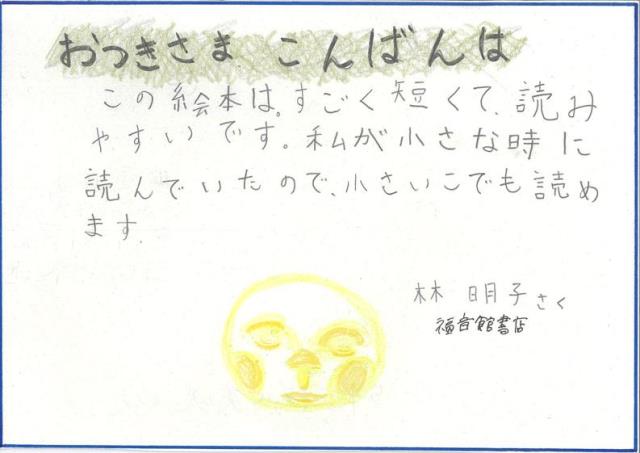 おつきさま こんばんは
この絵本は、すごく短くて、読み
やすいです。私が小さな時に
読んでいたので、小さいこでも読め
ます。
林 明子 さく
福音館書店